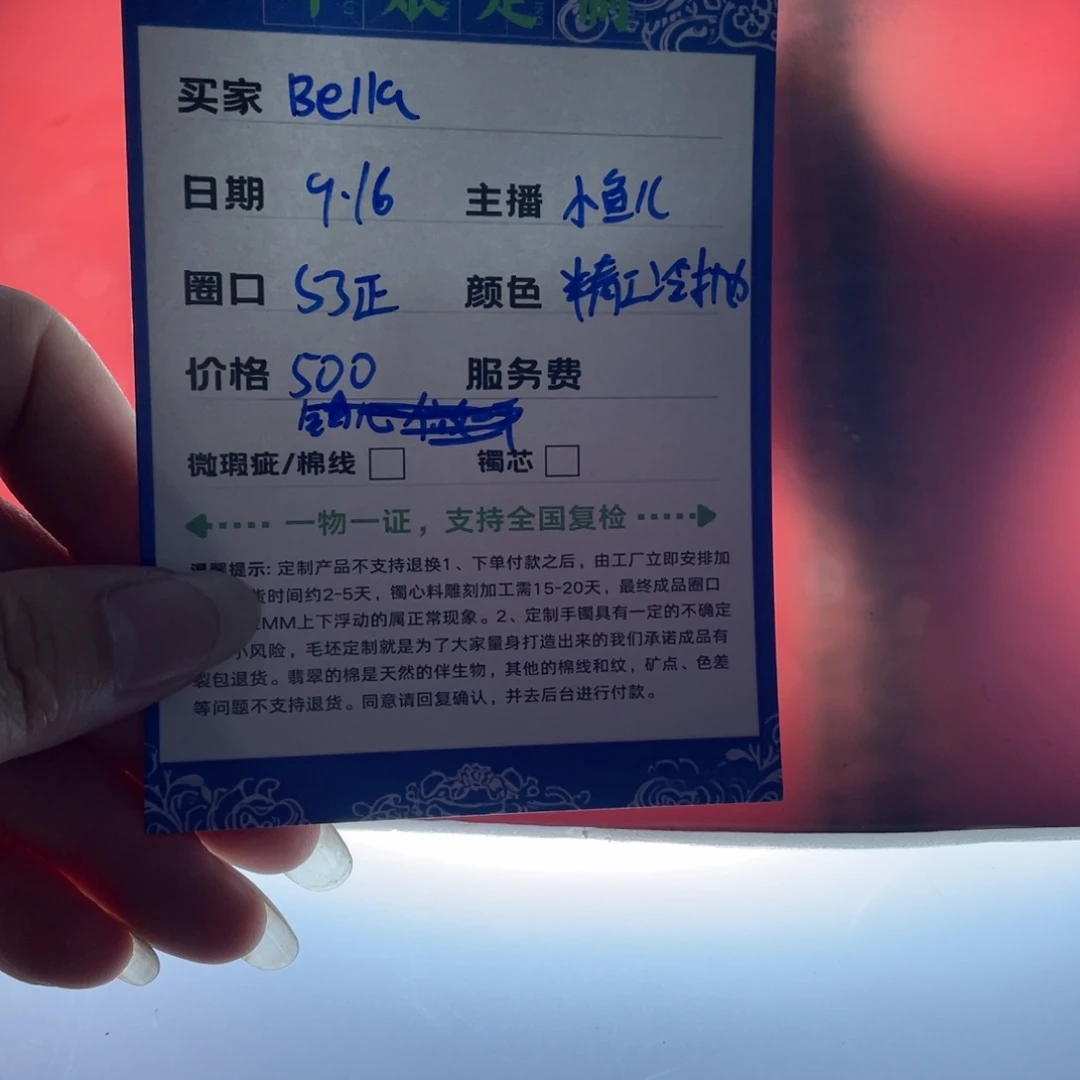 买家 Bella
日期 9.16 主播 小鱼儿
圈口 53正 颜色 精工冷抛
价格 500 服务费
微瑕疵/棉线 镯芯
一物一证，支持全国复检
温馨提示: 定制产品不支持退换1、下单付款之后，由工厂立即安排加
货时间约2-5天，镯心料雕刻加工需15-20天，最终成品圈口
MM上下浮动的属正常现象。2、定制手镯具有一定的不确定
小风险，毛坯定制就是为了大家量身打造出来的我们承诺成品有
裂包退货。翡翠的棉是天然的伴生物，其他的棉线和纹，矿点、色差
等问题不支持退货。同意请回复确认，并去后台进行付款。